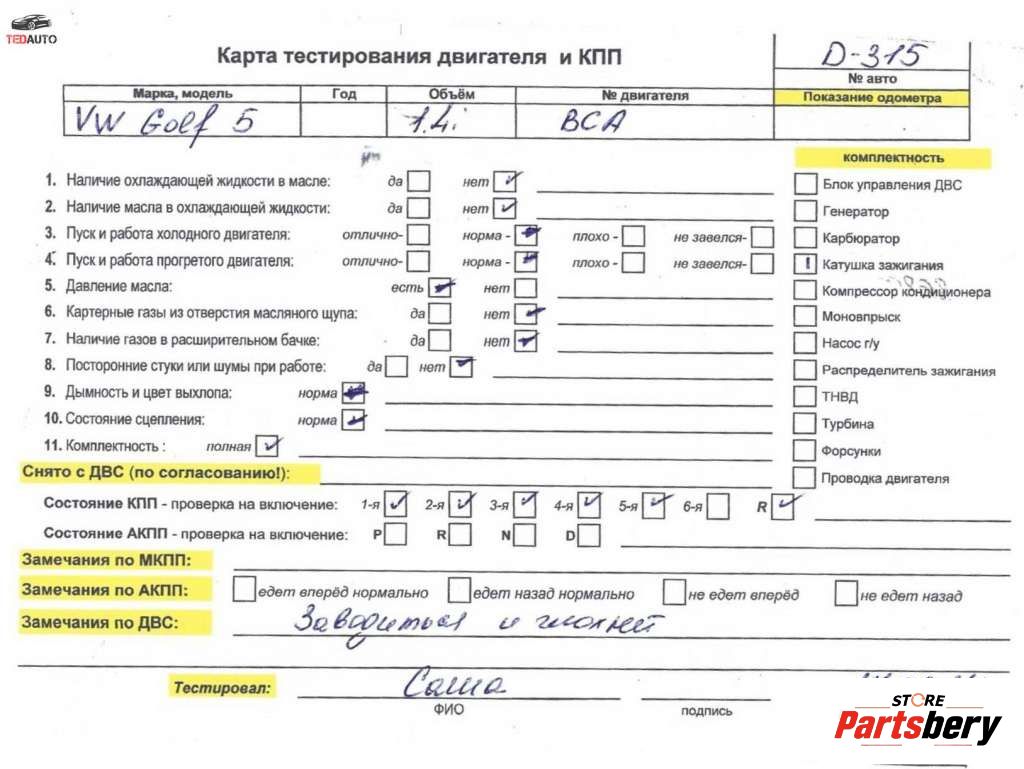 TEDAUTO
Карта тестирования двигателя и КПП
D-315
№ авто
Марка, модель Год Объём № двигателя Показание одометра
VW Golf 5 1.4i BCA
комплектность
1. Наличие охлаждающей жидкости в масле: да нет
Блок управления ДВС
2. Наличие масла в охлаждающей жидкости: да нет
Генератор
3. Пуск и работа холодного двигателя: отлично- норма - плохо- не завелся-
Карбюратор
4. Пуск и работа прогретого двигателя: отлично- норма - плохо- не завелся-
Катушка зажигания
5. Давление масла: есть нет
Компрессор кондиционера
6. Картерные газы из отверстия масляного щупа: да нет
Моновпрыск
7. Наличие газов в расширительном бачке: да нет
Насос г/у
8. Посторонние стуки или шумы при работе: да нет
Распределитель зажигания
9. Дымность и цвет выхлопа: норма
ТНВД
10. Состояние сцепления: норма
Турбина
11. Комплектность : полная
Форсунки
Снято с ДВС (по согласованию!):
Проводка двигателя
Состояние КПП - проверка на включение: 1-я 2-я 3-я 4-я 5-я 6-я R
Состояние АКПП - проверка на включение: P R N D
Замечания по МКПП:
Замечания по АКПП: едет вперёд нормально едет назад нормально не едет вперёд не едет назад
Замечания по ДВС: Заводиться и глохнет
Тестировал: Саша
ФИО подпись
STORE
Partsbery